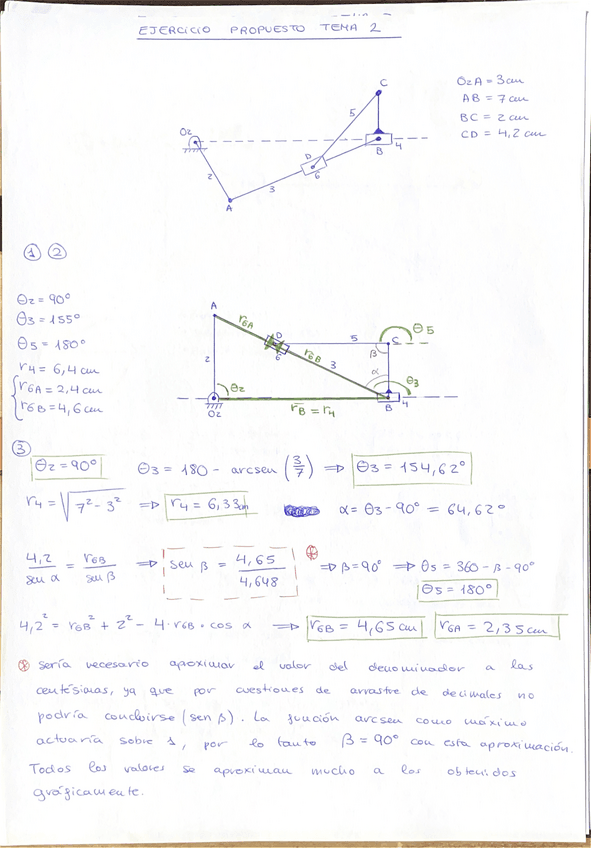 EJERCICIO PROPUESTO TEMA 2
O2A = 3cm
AB = 7 cm
BC = 2 cm
CD = 4,2 cm
C
5
O2
D
B
4
6
2
3
A
① ②
θ2 = 90°
θ3 = 155°
θ5 = 180°
r4 = 6,4 cm
r6A = 2,4 cm
r6B = 4,6 cm
A
r6A
D
5
C
θ5
6
r6B
β
2
3
α
θ3
θ2
B
4
O2
r̄B = r4
③
θ2 = 90° θ3 = 180 - arcsen (3/7) ⇒ θ3 = 154,62°
r4 = √(7² - 3²) ⇒ r4 = 6,33cm α = θ3 - 90° = 64,62°
4,2 / sen α = r6B / sen β ⇒ sen β = 4,65 / 4,648 ⊛ ⇒ β = 90° ⇒ θ5 = 360 - β - 90°
θ5 = 180°
4,2² = r6B² + 2² - 4 · r6B · cos α ⇒ r6B = 4,65 cm r6A = 2,35 cm
⊛ Sería necesario aproximar el valor del denominador a las
centésimas, ya que por cuestiones de arrastre de decimales no
podría concluirse (sen β). La función arcsen como máximo
actuaría sobre 1, por lo tanto β = 90° con esta aproximación.
Todos los valores se aproximan mucho a los obtenidos
gráficamente.